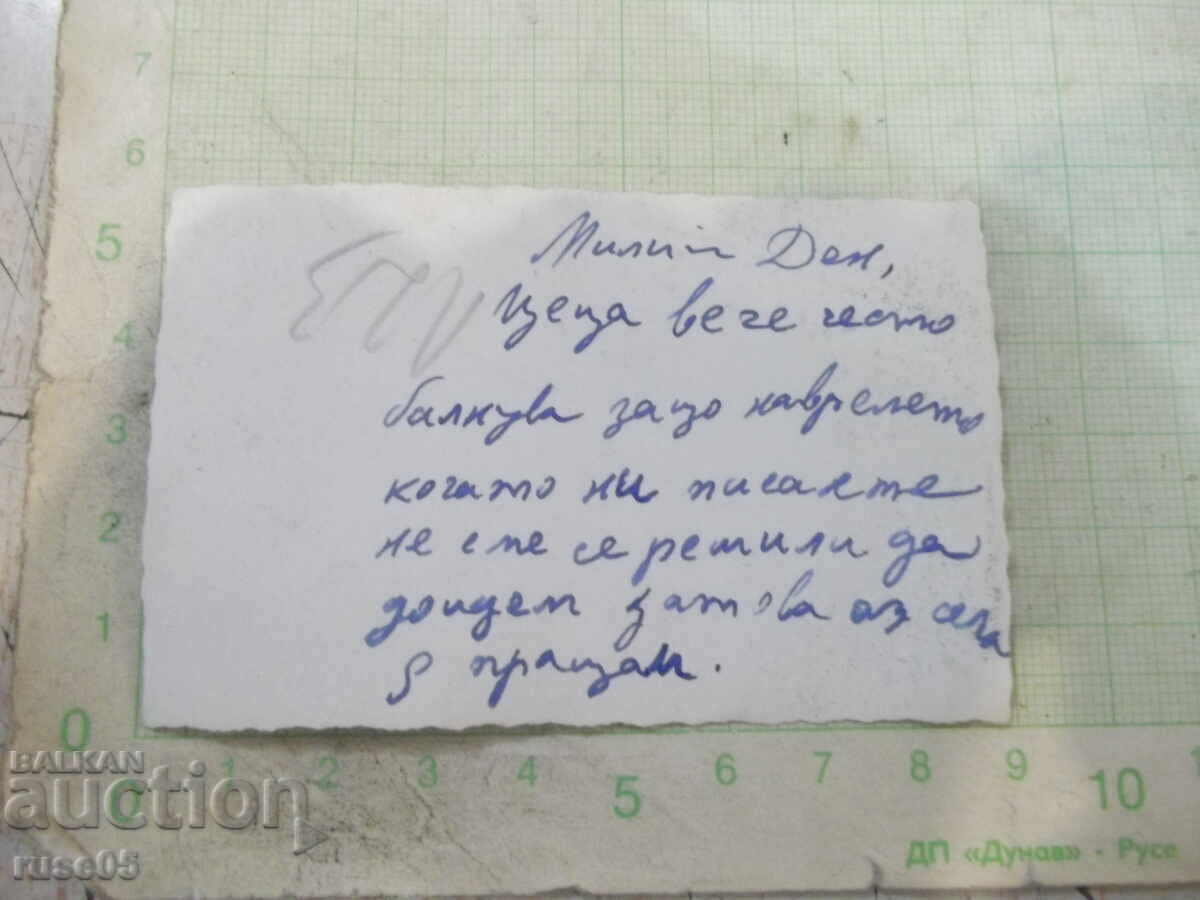 Милий Ден,
Цеца вече често
балнува защо навремето
когато ни писахте
не сме се решили да
дойдем затова аз сега
я пращам.
7
6
5
4
3
2
1
0
0 1 2 3 4 5 6 7 8 9 10
ДП «Дунав» - Русе
BALKAN
auction
ruse05